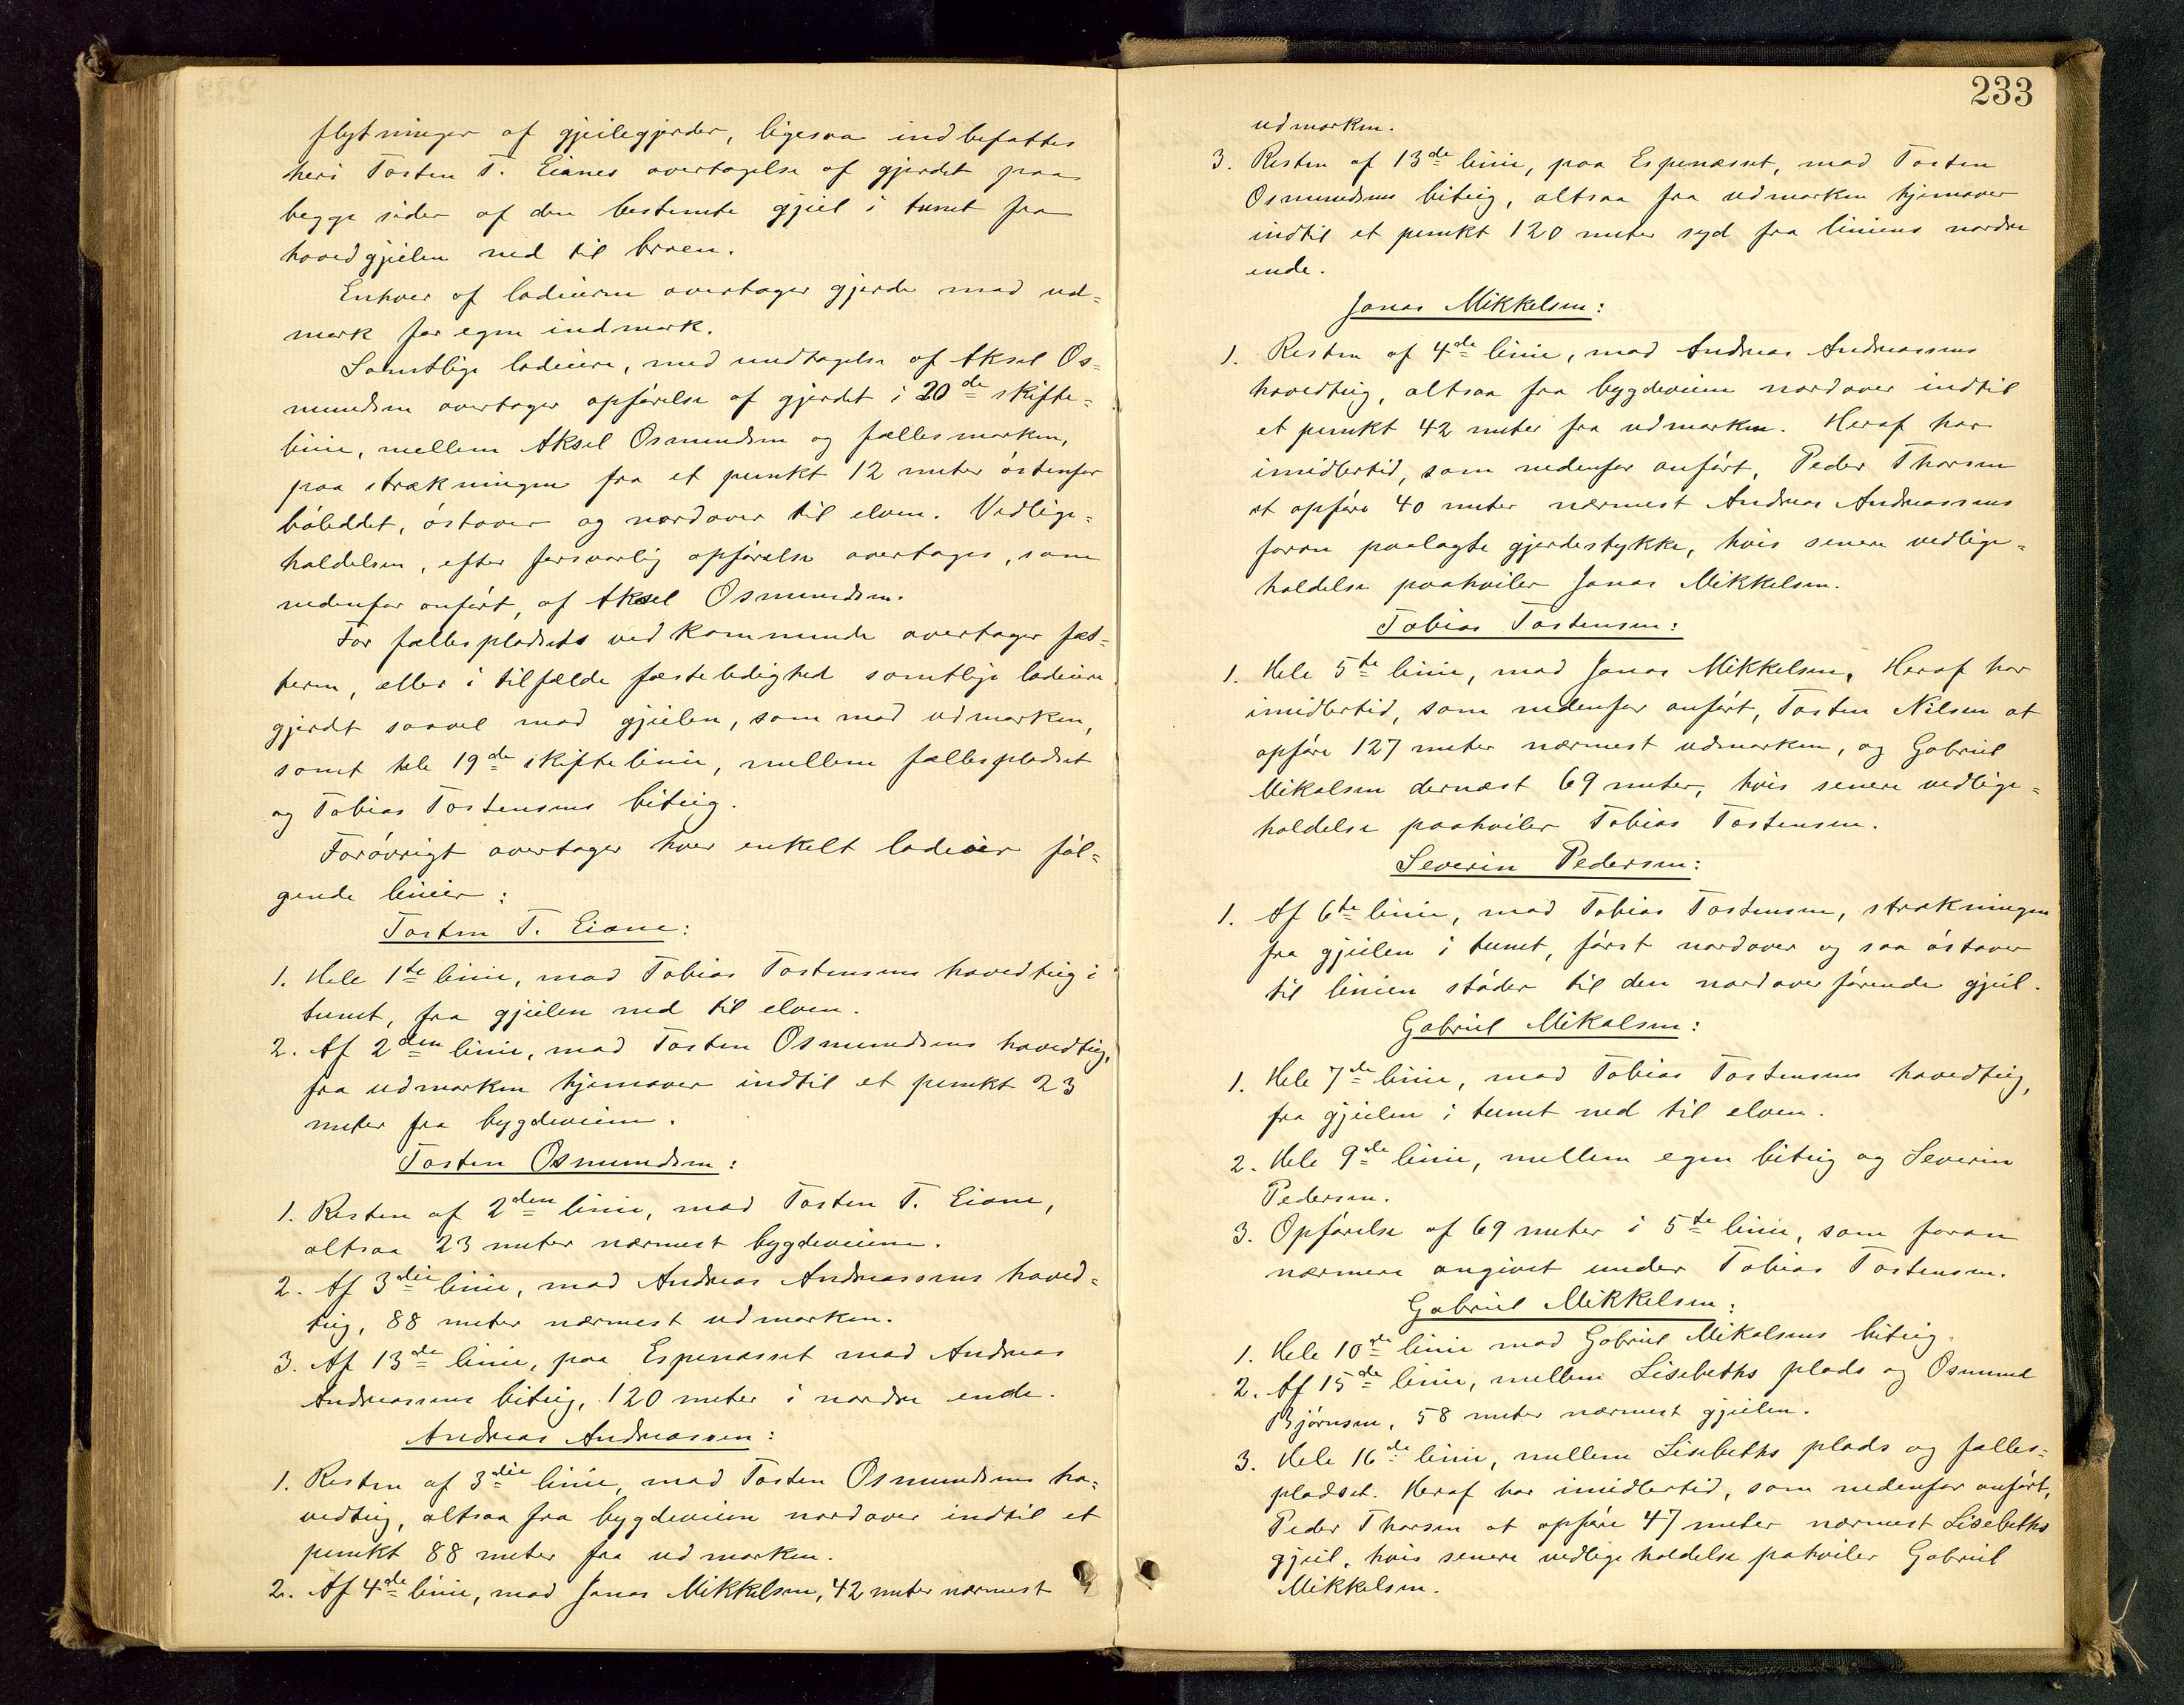 flytninger af gjeilegjerder, ligesaa indbefattes
heri Tosten T. Eianes overtagelse af gjerdet paa
begge sider af den bestemte gjeil i tunet fra
hovedgjeilen ned til broen.
Enhver af lodeierne overtager gjerde mod ud-
mark for egen indmark.
Samtlige lodeiere, med undtagelse af Aksel Os-
mundsen overtager opførelse af gjerdet i 20de skifte-
linie, mellem Aksel Osmundsen og fællesmarken,
paa strækningen fra et punkt 12 meter østenfor
bøleddet, østover og nordover til elven. Vedlige-
holdelsen, efter forsvarlig opførelse overtages, som
nedenfor anført, af Aksel Osmundsen.
For fællespladsets vedkommende overtager fæs-
teren, eller i tilfælde fæsteledighed samtlige lodeiere
gjerdet saavel mod gjeilen, som mod udmarken,
samt hele 19de skiftelinie, mellem fællespladset
og Tobias Tostensens biteig.
Forøvrigt overtager hver enkelt lodeier føl-
gende linier:
Tosten T. Eiane:
1. Hele 1te linie, mod Tobias Tostensens hovedteig i
tunet, fra gjeilen ned til elven.
2. Af 2den linie, mod Tosten Osmundsens hovedteig,
fra udmarken hjemover indtil et punkt 23
meter fra bygdeveien.
Tosten Osmundsen:
1. Resten af 2den linie, mod Tosten T. Eiane,
altsaa 23 meter nærmest bygdeveien.
2. Af 3die linie, mod Andreas Andreassens hoved-
teig, 88 meter nærmest udmarken.
3. Af 13de linie, paa Espenæsset mod Andreas
Andreassens biteig, 120 meter i nordre ende.
Andreas Andreassen:
1. Resten af 3die linie, mod Tosten Osmundsens ho-
vedteig, altsaa fra bygdeveien nordover indtil et
punkt 88 meter fra udmarken.
2. Af 4de linie, mod Jonas Mikkelsen, 42 meter nærmest
233
udmarken.
3. Resten af 13de linie, paa Espenæsset, mod Tosten
Osmundsens biteig, altsaa fra udmarken hjemover
indtil et punkt 120 meter syd fra liniens nordre
ende.
Jonas Mikkelsen:
1. Resten af 4de linie, mod Andreas Andreassens
hovedteig, altsaa fra bygdeveien nordover indtil
et punkt 42 meter fra udmarken. Heraf har
imidlertid, som nedenfor anført, Peder Thorsen
at opføre 40 meter nærmest Andreas Andreassens
foran paalagte gjerdestykke, hvis senere vedlige-
holdelse paahviler Jonas Mikkelsen.
Tobias Tostensen:
1. Hele 5te linie, mod Jonas Mikkelsen, Heraf har
imidlertid, som nedenfor anført, Tosten Nilsen at
opføre 127 meter nærmest udmarken, og Gabriel
Mikalsen dernæst 69 meter, hvis senere vedlige-
holdelse paahviler Tobias Tostensen.
Severin Pedersen:
1. Af 6te linie, mod Tobias Tostensen, strækningen
fra gjeilen i tunet, først nordover og saa østover
til linien støder til den nordover førende gjeil.
Gabriel Mikalsen:
1. Hele 7de linie, mod Tobias Tostensens hovedteig,
fra gjeilen i tunet ned til elven.
2. Hele 9de linie, mellem egen biteig og Severin
Pedersen.
3. Opførelse af 69 meter i 5te linie, som foran
nærmere angivet under Tobias Tostensen.
Gabriel Mikkelsen:
1. Hele 10de linie mod Gabriel Mikalsens biteig.
2. Af 15de linie, mellem Lisebeths plads og Osmund
Bjørnsen, 58 meter nærmest gjeilen.
3. Hele 16de linie, mellem Lisebeths plads og fælles-
pladset. Heraf har imidlertid, som nedenfor anført,
Peder Thorsen at opføre 47 meter nærmest Lisebeths
gjeil, hvis senere vedligeholdelse pahviler Gabriel
Mikkelsen.